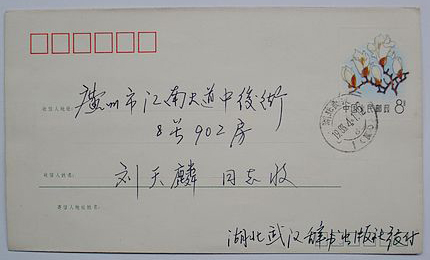 中国人民邮政 8分
收信人地址:
广州市江南大道中后街
8号902房
收信人姓名:
刘天麟 同志收
寄信人地址姓名:
湖北武汉辞书出版社